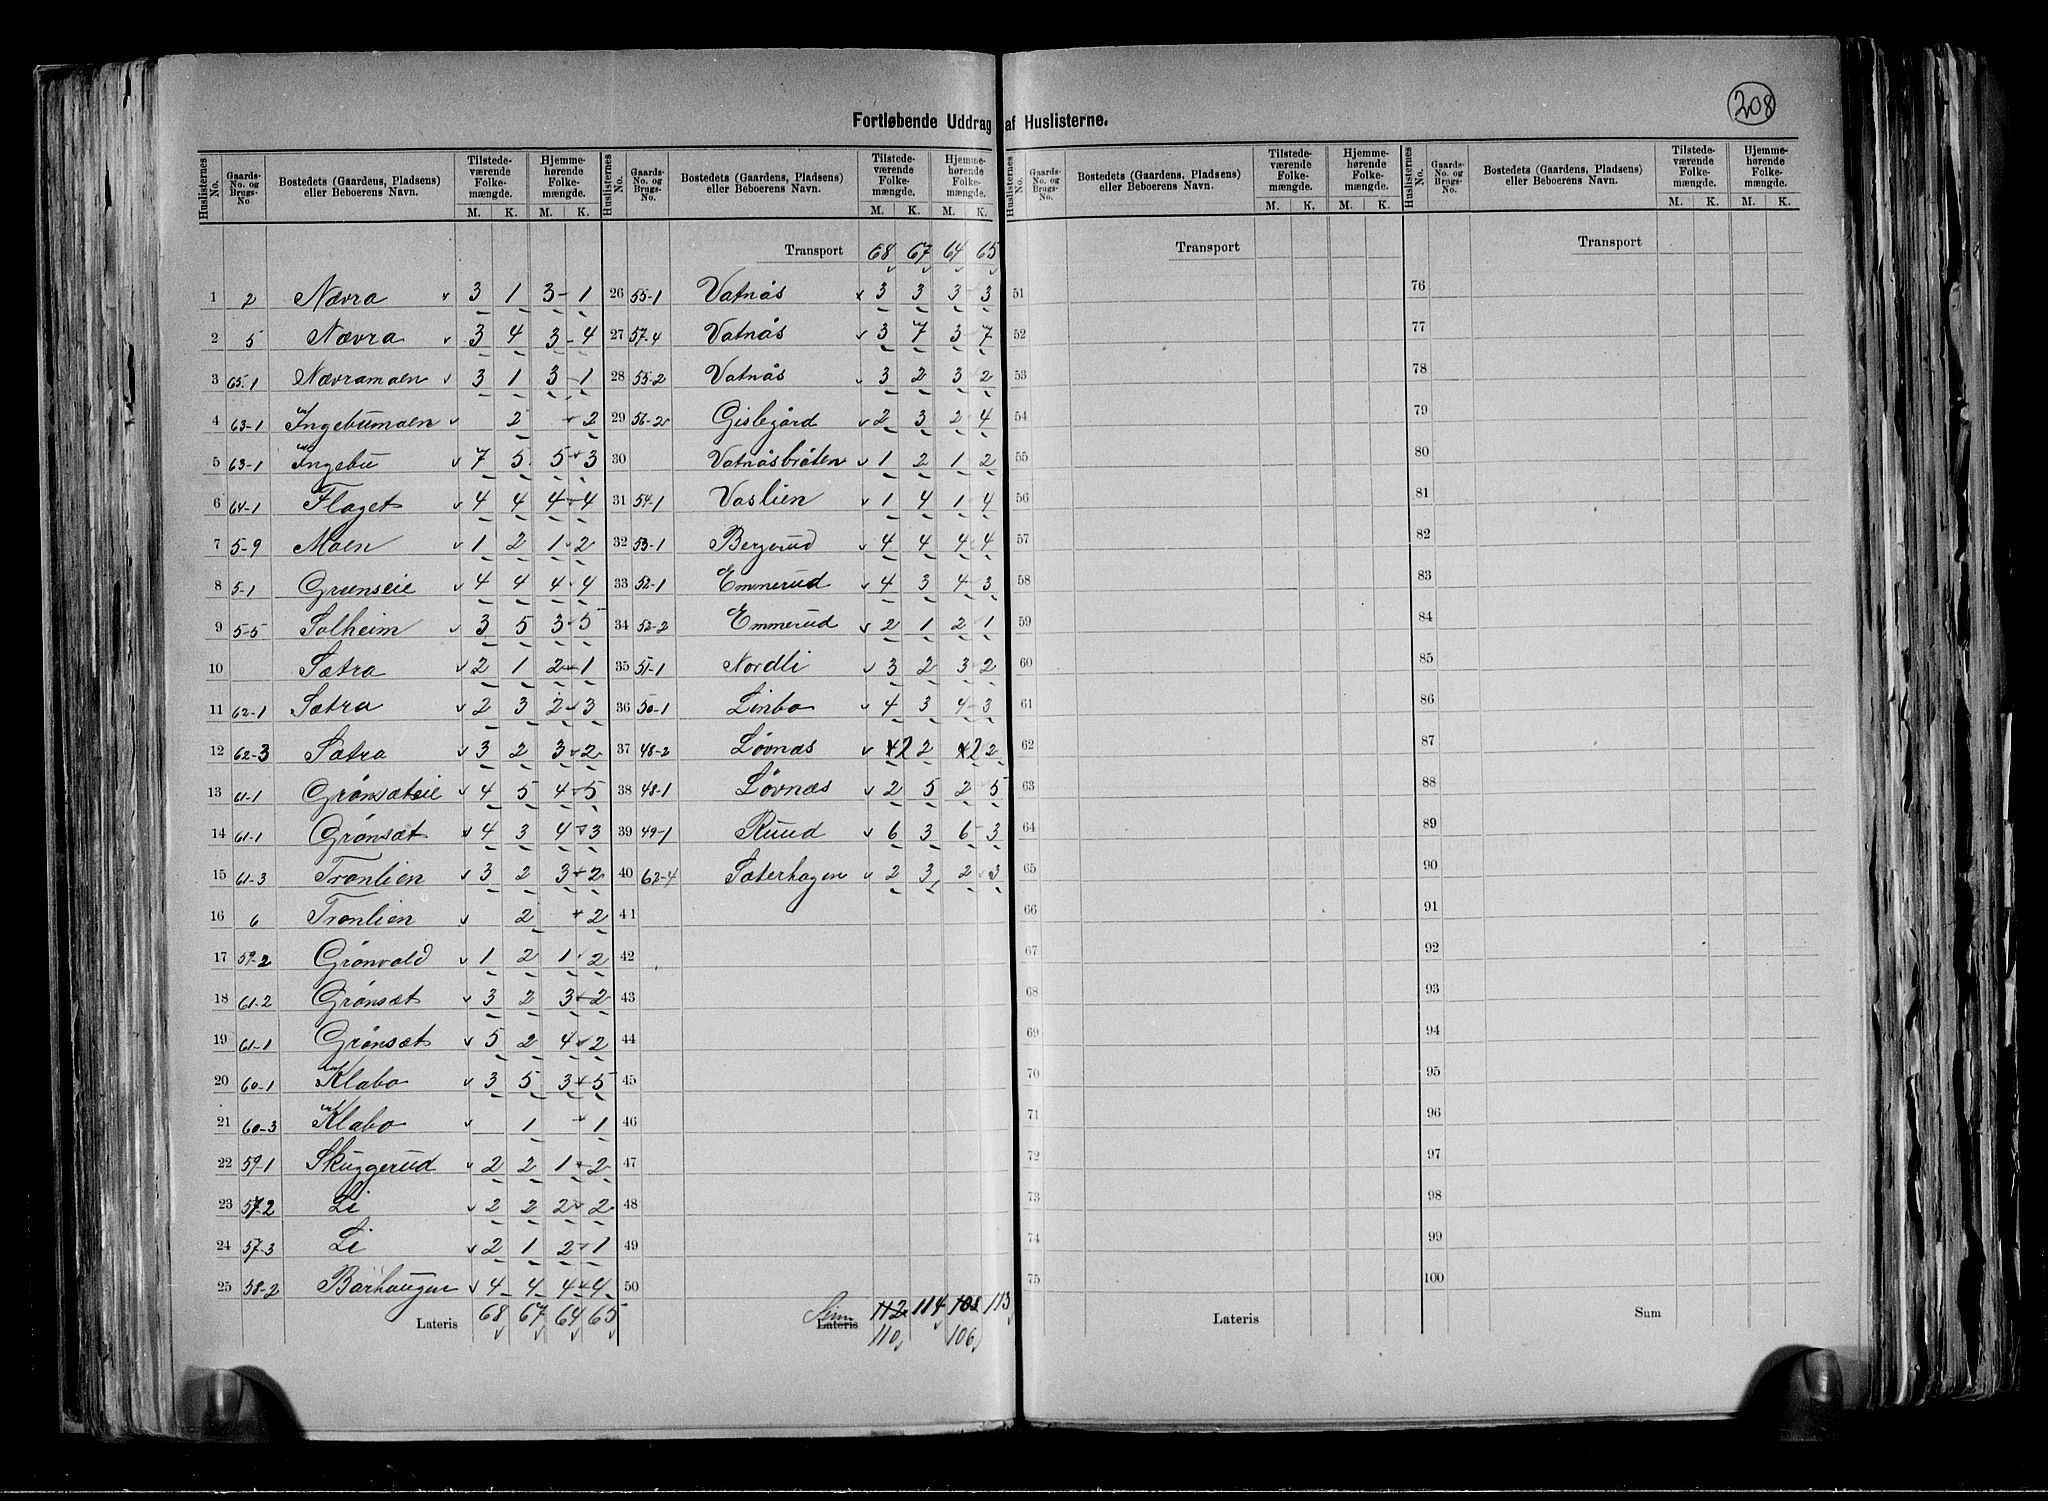 208
Fortløbende Uddrag af Huslisterne.
Huslisternes No. Gaards-No. og Brugs-No. Bostedets (Gaardens, Pladsens) eller Beboerens Navn. Tilstedeværende Folkemængde. M. K. Hjemmehørende Folkemængde. M. K.
1 2 Nævra 3 1 3 1
2 5 Nævra 3 4 3 4
3 65-1 Nævramoen 3 1 3 1
4 63-1 Ingebumoen 2 2
5 63-1 Ingebu 7 5 5 3
6 64-1 Flaget 4 4 4 4
7 5-9 Moen 1 2 1 2
8 5-1 Grænseie 4 4 4 4
9 5-5 Solheim 3 5 3 5
10 Sætra 2 1 2 1
11 62-1 Sætra 2 3 2 3
12 62-3 Sætra 3 2 3 2
13 61-1 Grønsæteie 4 5 4 5
14 61-1 Grønsæt 4 3 4 3
15 61-3 Tronlien 3 2 3 2
16 6 Tronlien 2 2
17 59-2 Grønvold 1 2 1 2
18 61-2 Grønsæt 3 2 3 2
19 61-1 Grønsæt 5 2 4 2
20 60-1 Klabo 3 5 3 5
21 60-3 Klabo 1 1
22 59-1 Skuggerud 2 2 1 2
23 57-2 Li 2 2 2 2
24 57-3 Li 2 1 2 1
25 58-2 Barhaugen 4 4 4 4
Lateris 68 67 64 65
Huslisternes No. Gaards-No. og Brugs-No. Bostedets (Gaardens, Pladsens) eller Beboerens Navn. Tilstedeværende Folkemængde. M. K. Hjemmehørende Folkemængde. M. K.
Transport 68 67 64 65
26 55-1 Vatnås 3 3 3 3
27 57-4 Vatnås 3 7 3 7
28 55-2 Vatnås 3 2 3 2
29 56-2 Gislegård 2 3 2 4
30 Vatnåsbråten 1 2 1 2
31 54-1 Vaslien 1 4 1 4
32 53-1 Bergerud 4 4 4 4
33 52-1 Emmerud 4 3 4 3
34 52-2 Emmerud 2 1 2 1
35 51-1 Nordli 3 2 3 2
36 50-1 Linbo 4 3 4 3
37 48-2 Løvnæs 2 2 2 2
38 48-1 Løvnæs 2 5 2 5
39 49-1 Ruud 6 3 6 3
40 62-4 Sæterhagen 2 3 2 3
41
42
43
44
45
46
47
48
49
50
Lateris Sum 112 114 108 113
110 106
Huslisternes No. Gaards-No. og Brugs-No. Bostedets (Gaardens, Pladsens) eller Beboerens Navn. Tilstedeværende Folkemængde. M. K. Hjemmehørende Folkemængde. M. K.
Transport
51
52
53
54
55
56
57
58
59
60
61
62
63
64
65
66
67
68
69
70
71
72
73
74
75
Lateris
Huslisternes No. Gaards-No. og Brugs-No. Bostedets (Gaardens, Pladsens) eller Beboerens Navn. Tilstedeværende Folkemængde. M. K. Hjemmehørende Folkemængde. M. K.
Transport
76
77
78
79
80
81
82
83
84
85
86
87
88
89
90
91
92
93
94
95
96
97
98
99
100
Sum